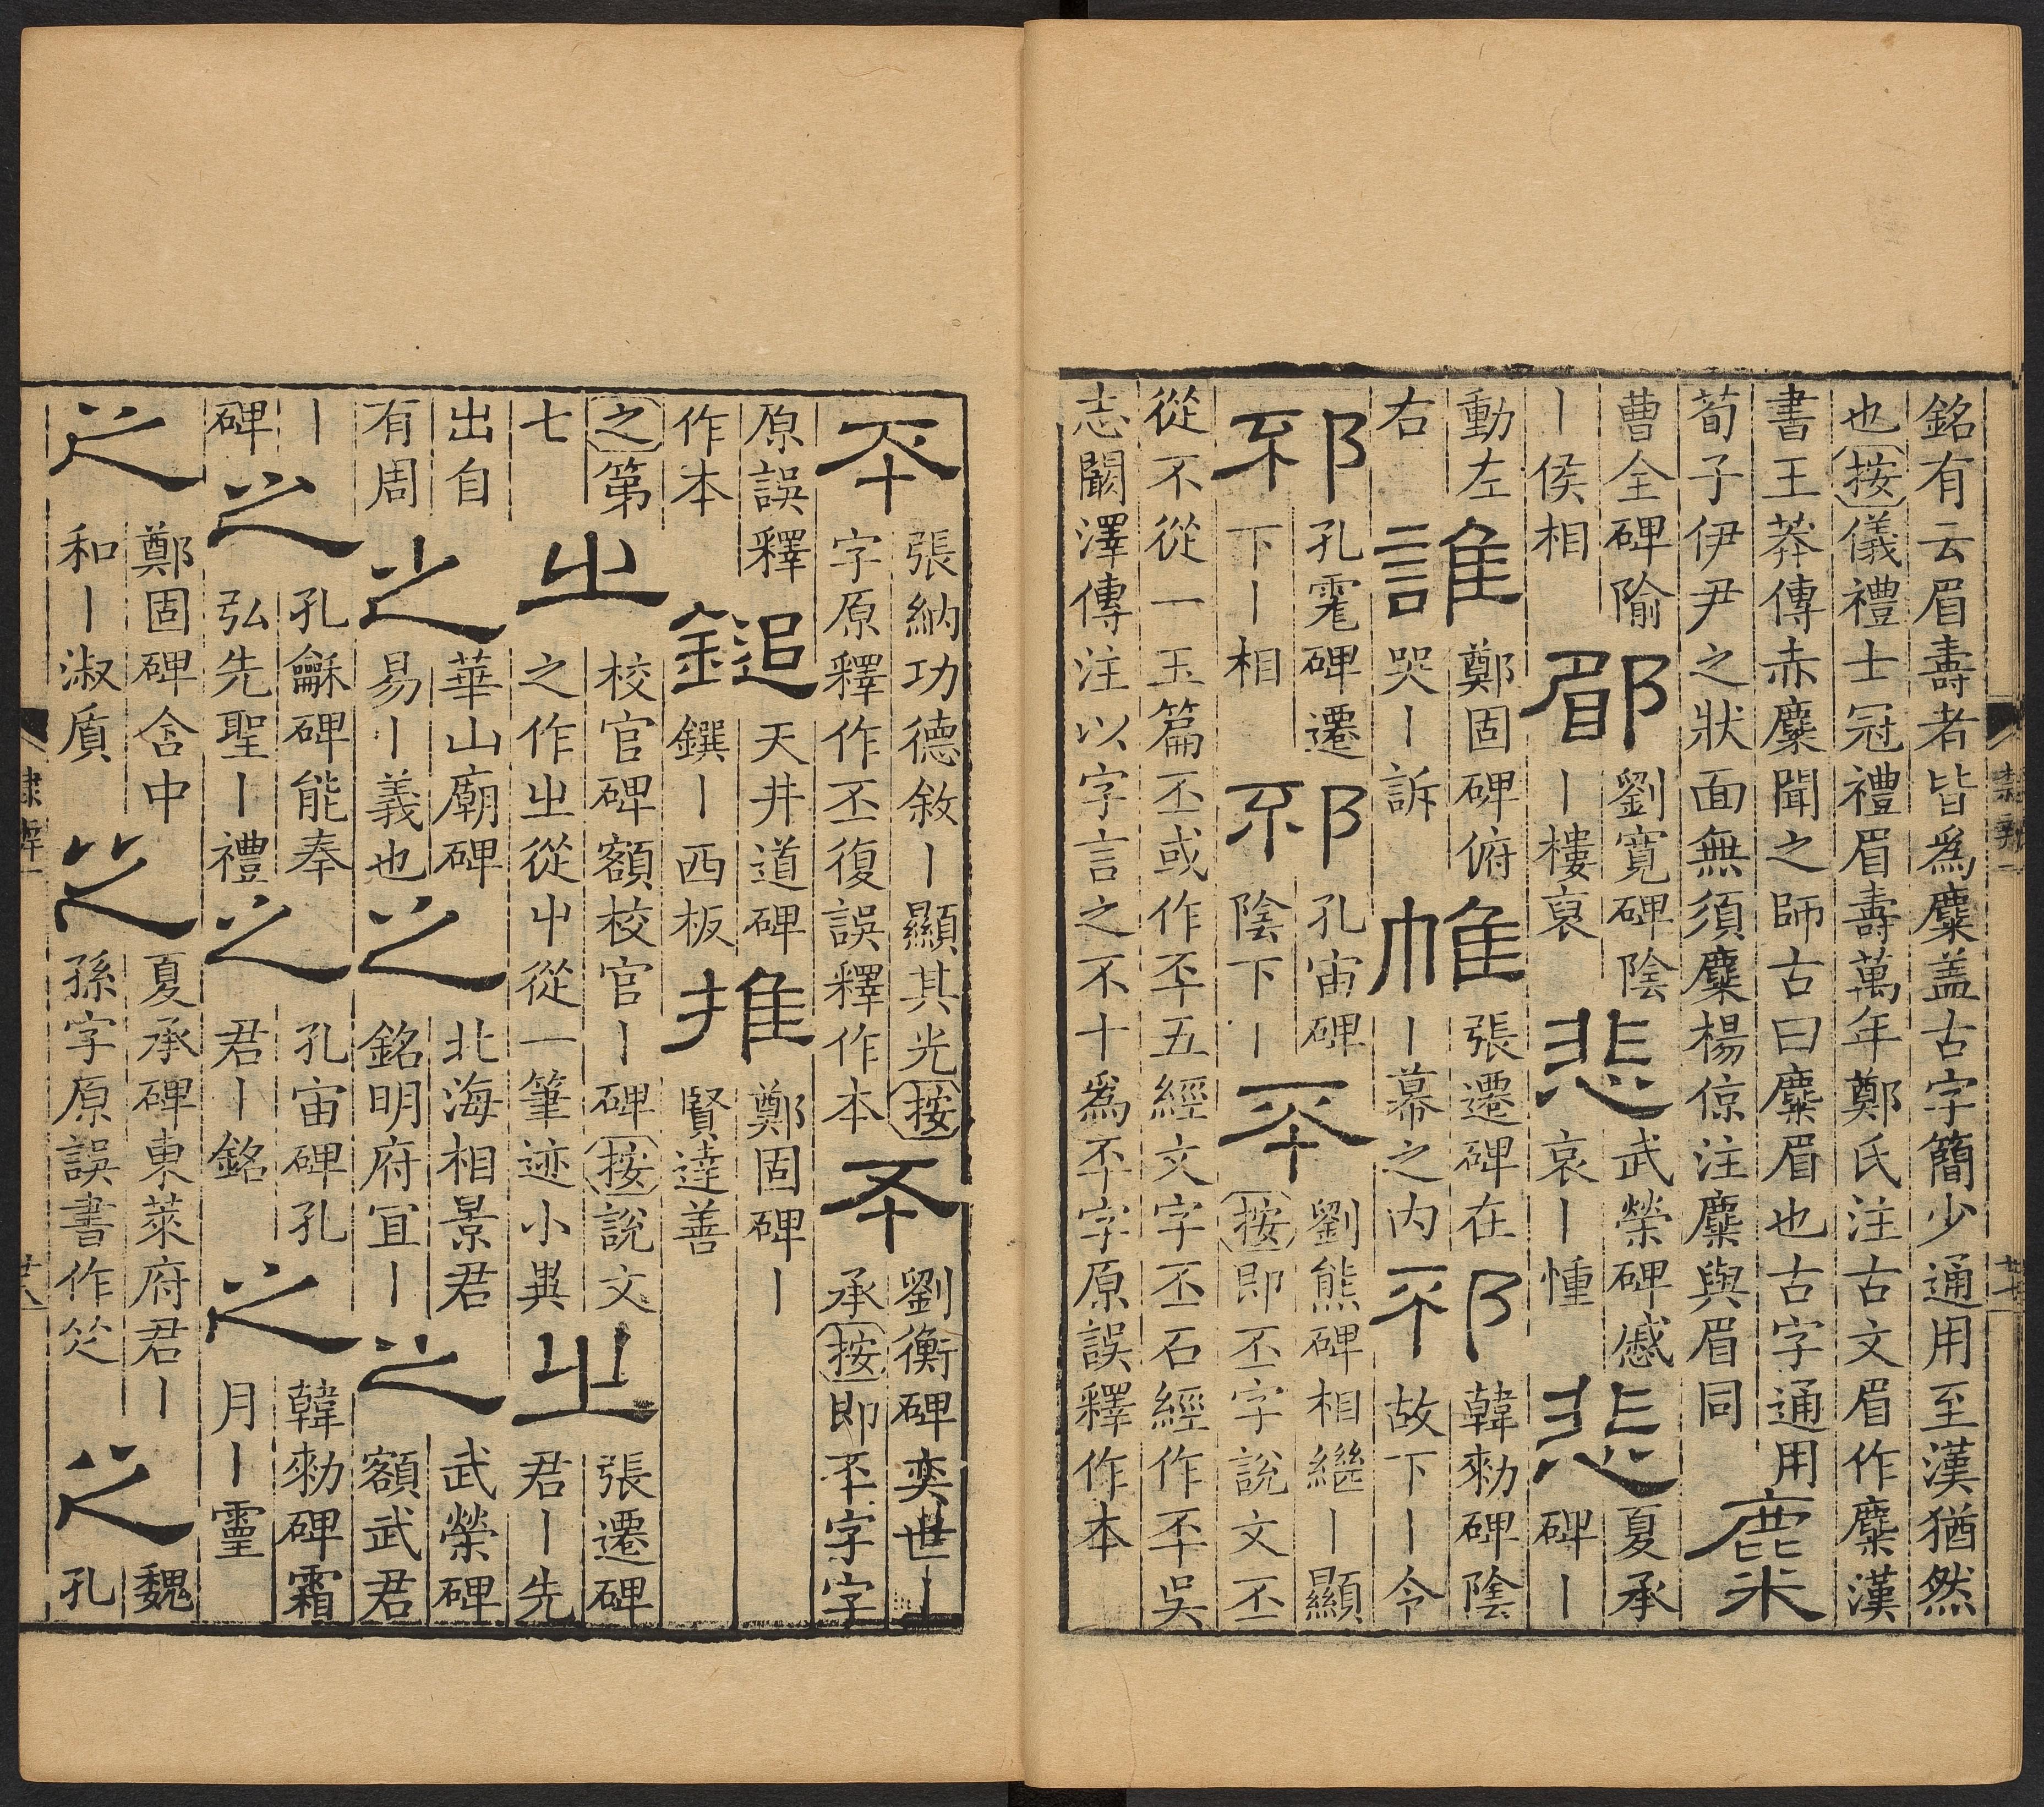 銘有云眉壽者皆爲麋盖古字簡少通用至漢猶然
也按儀禮士冠禮眉壽萬年鄭氏注古文眉作麋漢
書王莽傳赤麋聞之師古曰麋眉也古字通用
荀子伊尹之狀面無須麋楊倞注麋與眉同
麋
曹全碑隃
丨侯相
郿
劉寬碑陰
丨樓裒
悲
武榮碑慼
哀丨慟
悲
夏承
碑丨
動左
右
誰
鄭固碑俯
哭丨訴
帷
張遷碑在
丨幕之内
邳
韓勑碑陰
故下丨令
邳
孔宙碑遷
下丨相
邳
孔宙碑
陰下丨
丕
劉熊碑相繼丨顯
按即丕字說文丕
從不從一玉篇丕或作㔻五經文字丕石經作㔻吳
志闞澤傳注以字言之不十爲㔻字原誤釋作本
㔻
張納功德敘丨顯其光按
字原釋作丕復誤釋作本
㔻
劉衡碑奕世丨
承按即㔻字字
原誤釋
作本
鎚
天井道碑
鐉丨西板
推
鄭固碑丨
賢達善
之第
七
㞢
校官碑額校官丨碑按說文
之作㞢從屮從一筆迹小異
㞢
張遷碑
君丨先
出自
有周
之
華山廟碑
易丨義也
之
北海相景君
銘明府冝丨
之
武榮碑
額武君
丨
碑
之
孔龢碑能奉
弘先聖丨禮
之
孔宙碑孔
君丨銘
之
韓勑碑霜
月丨靈
之
鄭固碑含中
和丨淑質
之
夏承碑東萊府君丨
孫字原誤書作
之
魏
孔
隸辨一
廿七
隸辨一
廿八